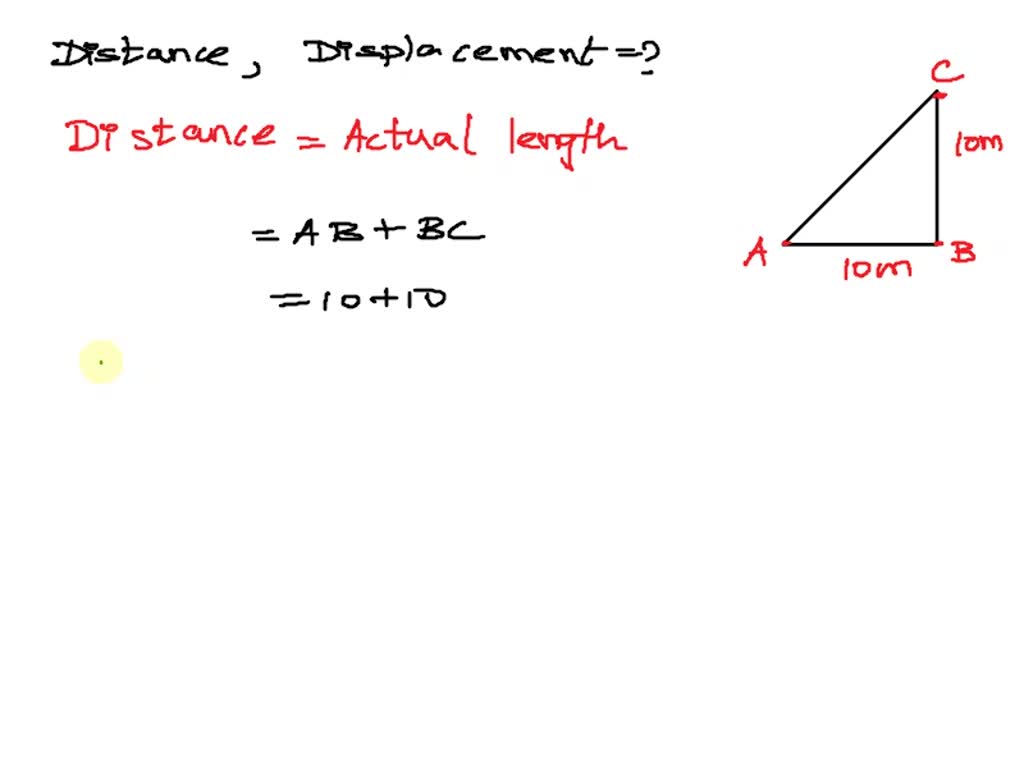 Distance, Displacement = ?
Distance = Actual length
= AB + BC
= 10 + 10
C
10m
A
B
10m